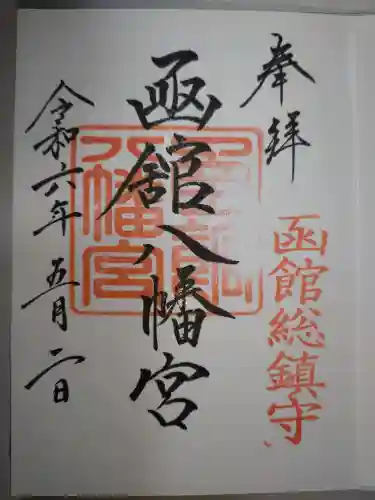 奉拝
函館総鎮守
函館八幡宮
函館八幡宮
令和六年五月二日